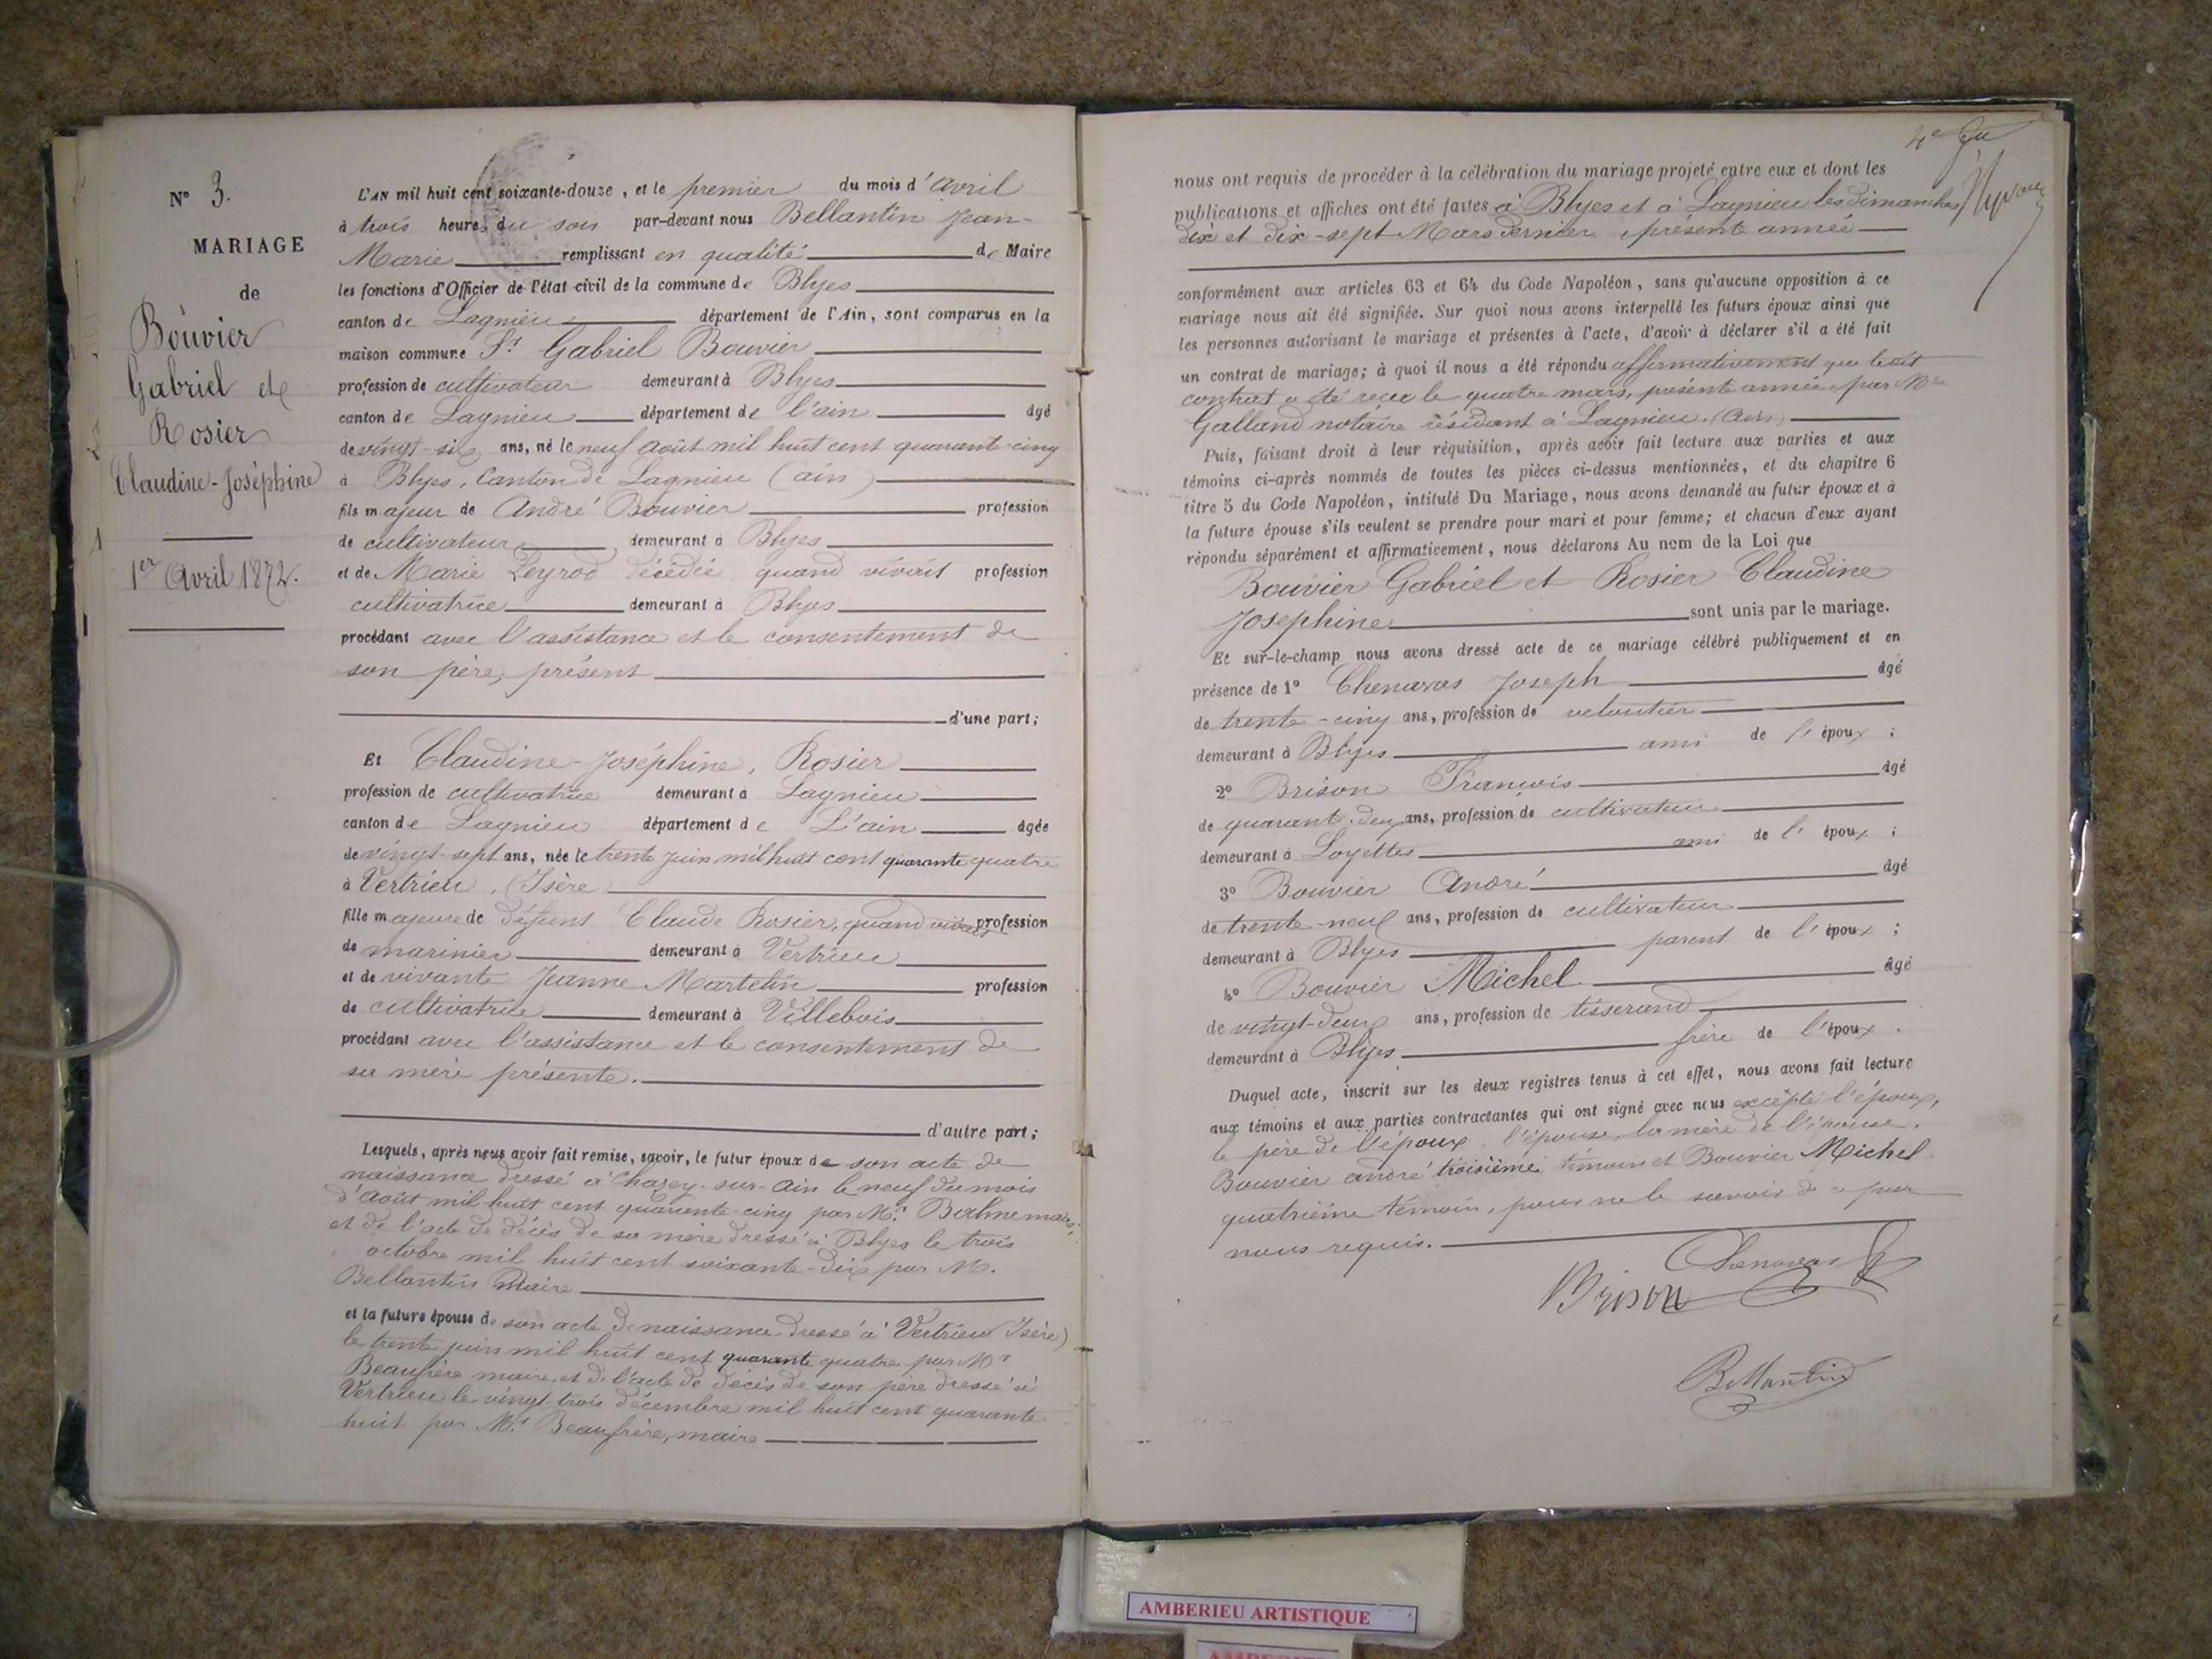 N° 3.
MARIAGE
de
Bouvier
Gabriel et
Rosier
Claudine-Joséphine
1er Avril 1872.
L'AN mil huit cent soixante-douze, et le premier du mois d'avril
à trois heures du soir par-devant nous Bellantin Jean-
Marie remplissant en qualité de Maire
les fonctions d'Officier de l'état civil de la commune de Blyes
canton de Lagnieu département de l'Ain, sont comparus en la
maison commune Sr Gabriel Bouvier
profession de cultivateur demeurant à Blyes
canton de Lagnieu département de l'ain âgé
de vingt-six ans, né le neuf août mil huit cent quarant-cinq
à Blyes, Canton de Lagnieu (ain)
fils majeur de André Bouvier profession
de cultivateur demeurant à Blyes
et de Marie Peyrod décédée quand vivait profession
cultivatrice demeurant à Blyes
procédant avec l'assistance et le consentement de
son père, présent
d'une part;
Et Claudine-Joséphine, Rosier
profession de cultivatrice demeurant à Lagnieu
canton de Lagnieu département de L'ain âgée
de vingt-sept ans, née le trente Juin mil huit cent quarante quatre
à Vertrieu, (Isère)
fille majeure de défunt Claude Rosier, quand vivait profession
de marinier demeurant à Vertrieu
et de vivante Jeanne Martelin profession
de cultivatrice demeurant à Villebois
procédant avec l'assistance et le consentement de
sa mère présente.
d'autre part;
Lesquels, après nous avoir fait remise, savoir, le futur époux de son acte de
naissance dressé à Chazey-sur-Ain le neuf du mois
d'août mil huit cent quarente-cinq par Mr Balme maire,
et de l'acte de décès de sa mère dressé à Blyes le trois
octobre mil huit cent soixante-dix par M.
Bellantin Maire
et la future épouse de son acte de naissance dressé à Vertrieu Isère)
le trente juin mil huit cent quarante quatre par Mr
Beaufrère maire, et de l'acte de décès de son père dressé à
Vertrieu le vingt-trois décembre mil huit cent quarante
huit par Mr Beaufrère, maire
4e
nous ont requis de procéder à la célébration du mariage projeté entre eux et dont les
publications et affiches ont été faites à Blyes et à Lagnieu les dimanches
dix et dix-sept Mars dernier, présente année
conformément aux articles 63 et 64 du Code Napoléon, sans qu'aucune opposition à ce
mariage nous ait été signifiée. Sur quoi nous avons interpellé les futurs époux ainsi que
les personnes autorisant le mariage et présentes à l'acte, d'avoir à déclarer s'il a été fait
un contrat de mariage; à quoi il nous a été répondu affirmativement que le dit
contrat a été recu le quatre mars, présente année, par Me
Galland notaire résidant à Lagnieu. (Ain)
Puis, faisant droit à leur réquisition, après avoir fait lecture aux parties et aux
témoins ci-après nommés de toutes les pièces ci-dessus mentionnées, et du chapitre 6
titre 5 du Code Napoléon, intitulé Du Mariage, nous avons demandé au futur époux et à
la future épouse s'ils veulent se prendre pour mari et pour femme; et chacun d'eux ayant
répondu séparément et affirmativement, nous déclarons Au nom de la Loi que
Bouvier Gabriel et Rosier Claudine
Josephine sont unis par le mariage.
Et sur-le-champ nous avons dressé acte de ce mariage célébré publiquement et en
présence de 1° Chenavas Joseph âgé
de trente-cinq ans, profession de veloutier
demeurant à Blyes ami de l'époux;
2° Brison François âgé
de quarant-deux ans, profession de cultivateur
demeurant à Loyettes ami de l'époux;
3° Bouvier André âgé
de trente-neuf ans, profession de cultivateur
demeurant à Blyes parent de l'époux;
4° Bouvier Michel âgé
de vingt-deux ans, profession de tisserand
demeurant à Blyes frère de l'époux.
Duquel acte, inscrit sur les deux registres tenus à cet effet, nous avons fait lecture
aux témoins et aux parties contractantes qui ont signé avec nous excépté l'époux,
le père de l'époux, l'épouse, la mère de l'épouse,
Bouvier andré troisième témoin et Bouvier Michel
quatrième témoin, pour ne le savoir de ce par
nous requis.
Chenavas
Brison
Bellantin
AMBERIEU ARTISTIQUE